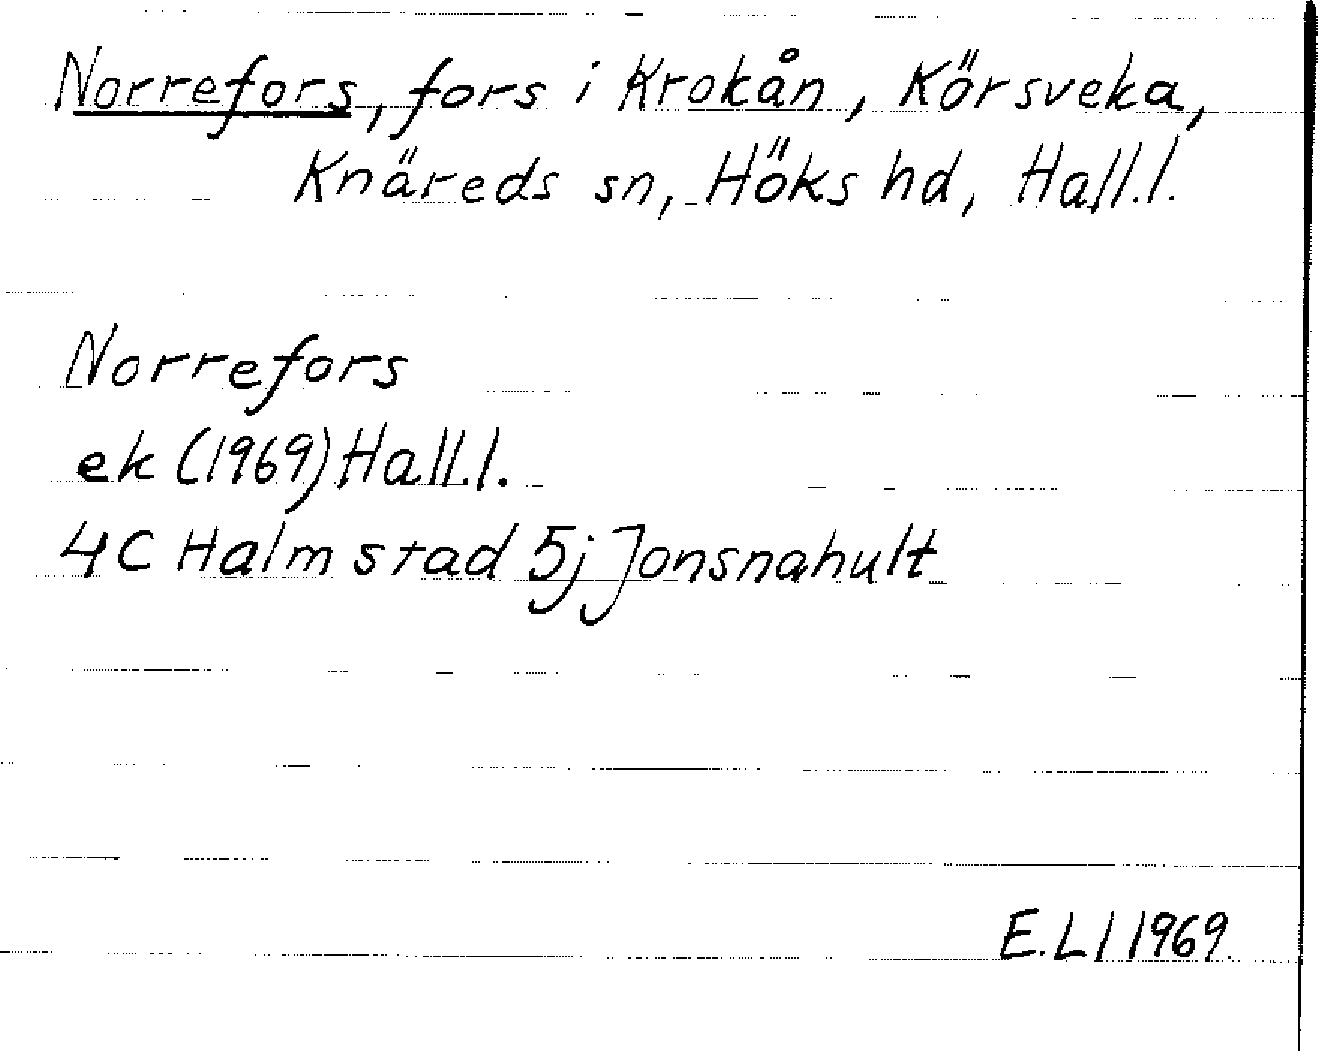 Norrefors, fors i Krokån, Körsveka,
Knäreds sn, Höks hd, Hall.l.
Norrefors
ek (1969) Hall.l.
4C Halmstad 5j Jonsnahult
E.Ll 1969.